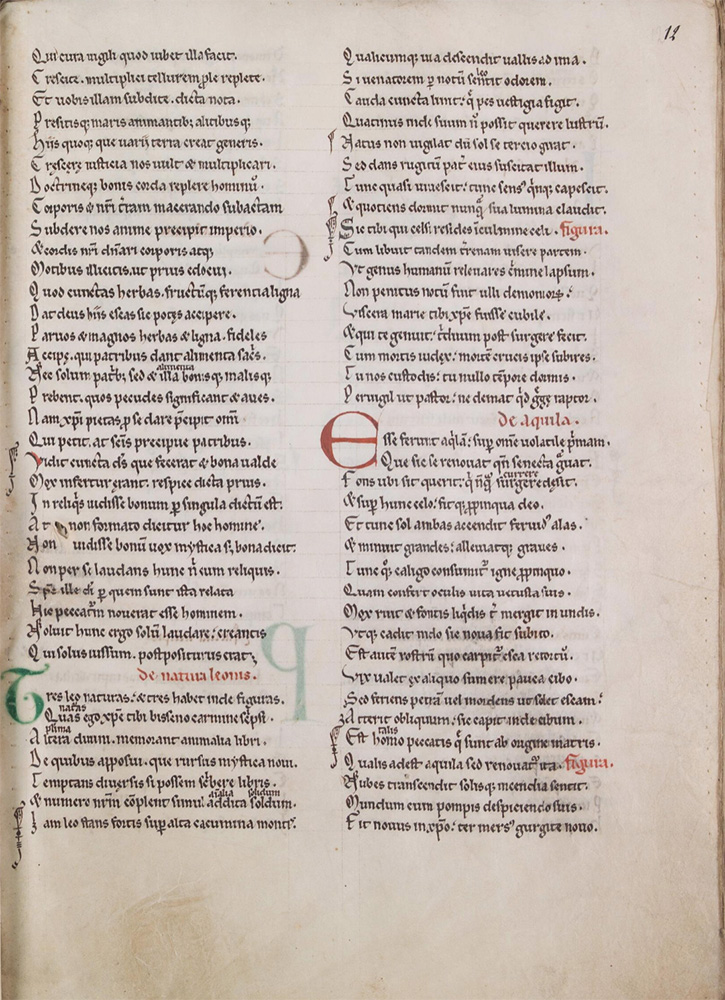 12
Qui cura vigili quod iubet illa facit.
Crescite. multiplici tellurem ple replete.
Et uobis illam subdite. dicta nota.
Presitisq; maris animantib; alitibusq;
hiis quoq; que uarii terra creat generis.
Crescere iusticia nos uult & multiplicari.
Doctrineq; bonis corda replere hominū.
Corporis & nr̄i t̄ram macerando subactam
Subdere nos anime precipit imperio.
& cordis nr̄i corporis atq;
Motibus illicitis. ut prius edocui.
Quod cunctas herbas. fructūq; ferentia ligna
Dat deus hiis escas se potes accipere.
Paruos & magnos herbas & ligna. fideles
Accipe. qui patribus dant alimenta sac̄s.
alimenta
Nec solum patb; sed & illa bonisq; malisq;
Prebent. quos pecudes significant & aues.
Nam xp̄i pietas p se dare p̄cipit om̄i
Qui petit. at sc̄is precipue patribus.
Vidit cuncta ds̄ que fecerat & bona ualde
Mox infertur erant. respice dicta prius.
In reliq̄s uidisse bonum p singula dictū est.
At non formato dicitur hoc homine.
Non uidisse bonū uox mystica s; bona dicit.
Non per se laudans hunc n̄ cum reliquis.
Spe ille di p quem sunt ista relata
hic peccatm̄ nouerat esse hominem.
Noluit hunc ergo solū laudare: creantis
Qui solus iussum. postpositurus erat;
de natura leonis.
Tres leo naturas: & tres habet inde figuras.
natas
Quas ego xp̄e tibi bisseno carmine sc̄psi.
prima
Altera diuini. memorant animalia libri.
De quibus apposui. que rursus mystica noui.
Temptans diuersis si possem sc̄bere libris.
& numero nrm̄ cōplent simul addita soldum.
Nam leo stans fortis sup alta cacumina montis.
Qualicumq; uia descendit uallis ad ima.
Si uenatorem p notū sentit odorem.
Cauda cuncta linit: q̄ pes uestigia figit.
Quatinus inde suum n̄ possit querere lustrū.
Natus non uigilat dū sol se tercio girat.
Sed dans rugitū pat̄ eius suscitat illum.
Tunc quasi uiuescit: tunc sens' q̄nq; capescit.
& quotiens dormit nunq̄ sua lumina claudit.
Sic tibi qui celsi resides ī culmine celi. figura.
Cum libuit tandem t̄renam uisere partem.
Vt genus humanū releuares c̄mine lapsum.
Non penitus notū fuit ulli demonior:
Viscera marie tibi xp̄e fuisse cubile.
& qui te genuit: t̄duum post surgere fecit.
Cum mortis iudex: morte crucis ipse subires.
Tu nos custodis: tu nullo tēpore dormis.
Peruigil ut pastor: ne demat q̄d g̅ge raptor.
de aquila.
Esse ferunt aq̄lā: sup om̄e uolatile p̄mam.
Que sic se renouat qn̄ senecta g̅uat.
currere
Fons ubi sit querit: q̄ nq̄ surgere desit.
& sup hunc celo: fit q; ppinqua deo.
Et tunc sol ambas accendit feruid' alas.
& minuit grandes: alleuiatq; graues.
Tunc q; caligo consumit igne ppinquo.
Quam confert oculis uita uetusta suis.
Mox ruit & fontis liq̄dis mergit in undis.
Vtq; cadit nido sic noua fit subito.
Est aut̄e rostrū quo carpit esca retortū.
Vix ualet ex aliquo sumere pauca cibo.
Sed feriens petrā uel mordens ut solet escam:
Atterit obliquum: sic capit inde cibum.
talis
Est homo peccatis q̄ sunt ab origine matris.
Qualis adest aquila sed renouat ita. figura.
Nubes transcendit solisq; incendia sentit.
Mundum cum pompis despiciendo suis.
Fit nouus in xp̄o: ter mers' gurgite nouo.